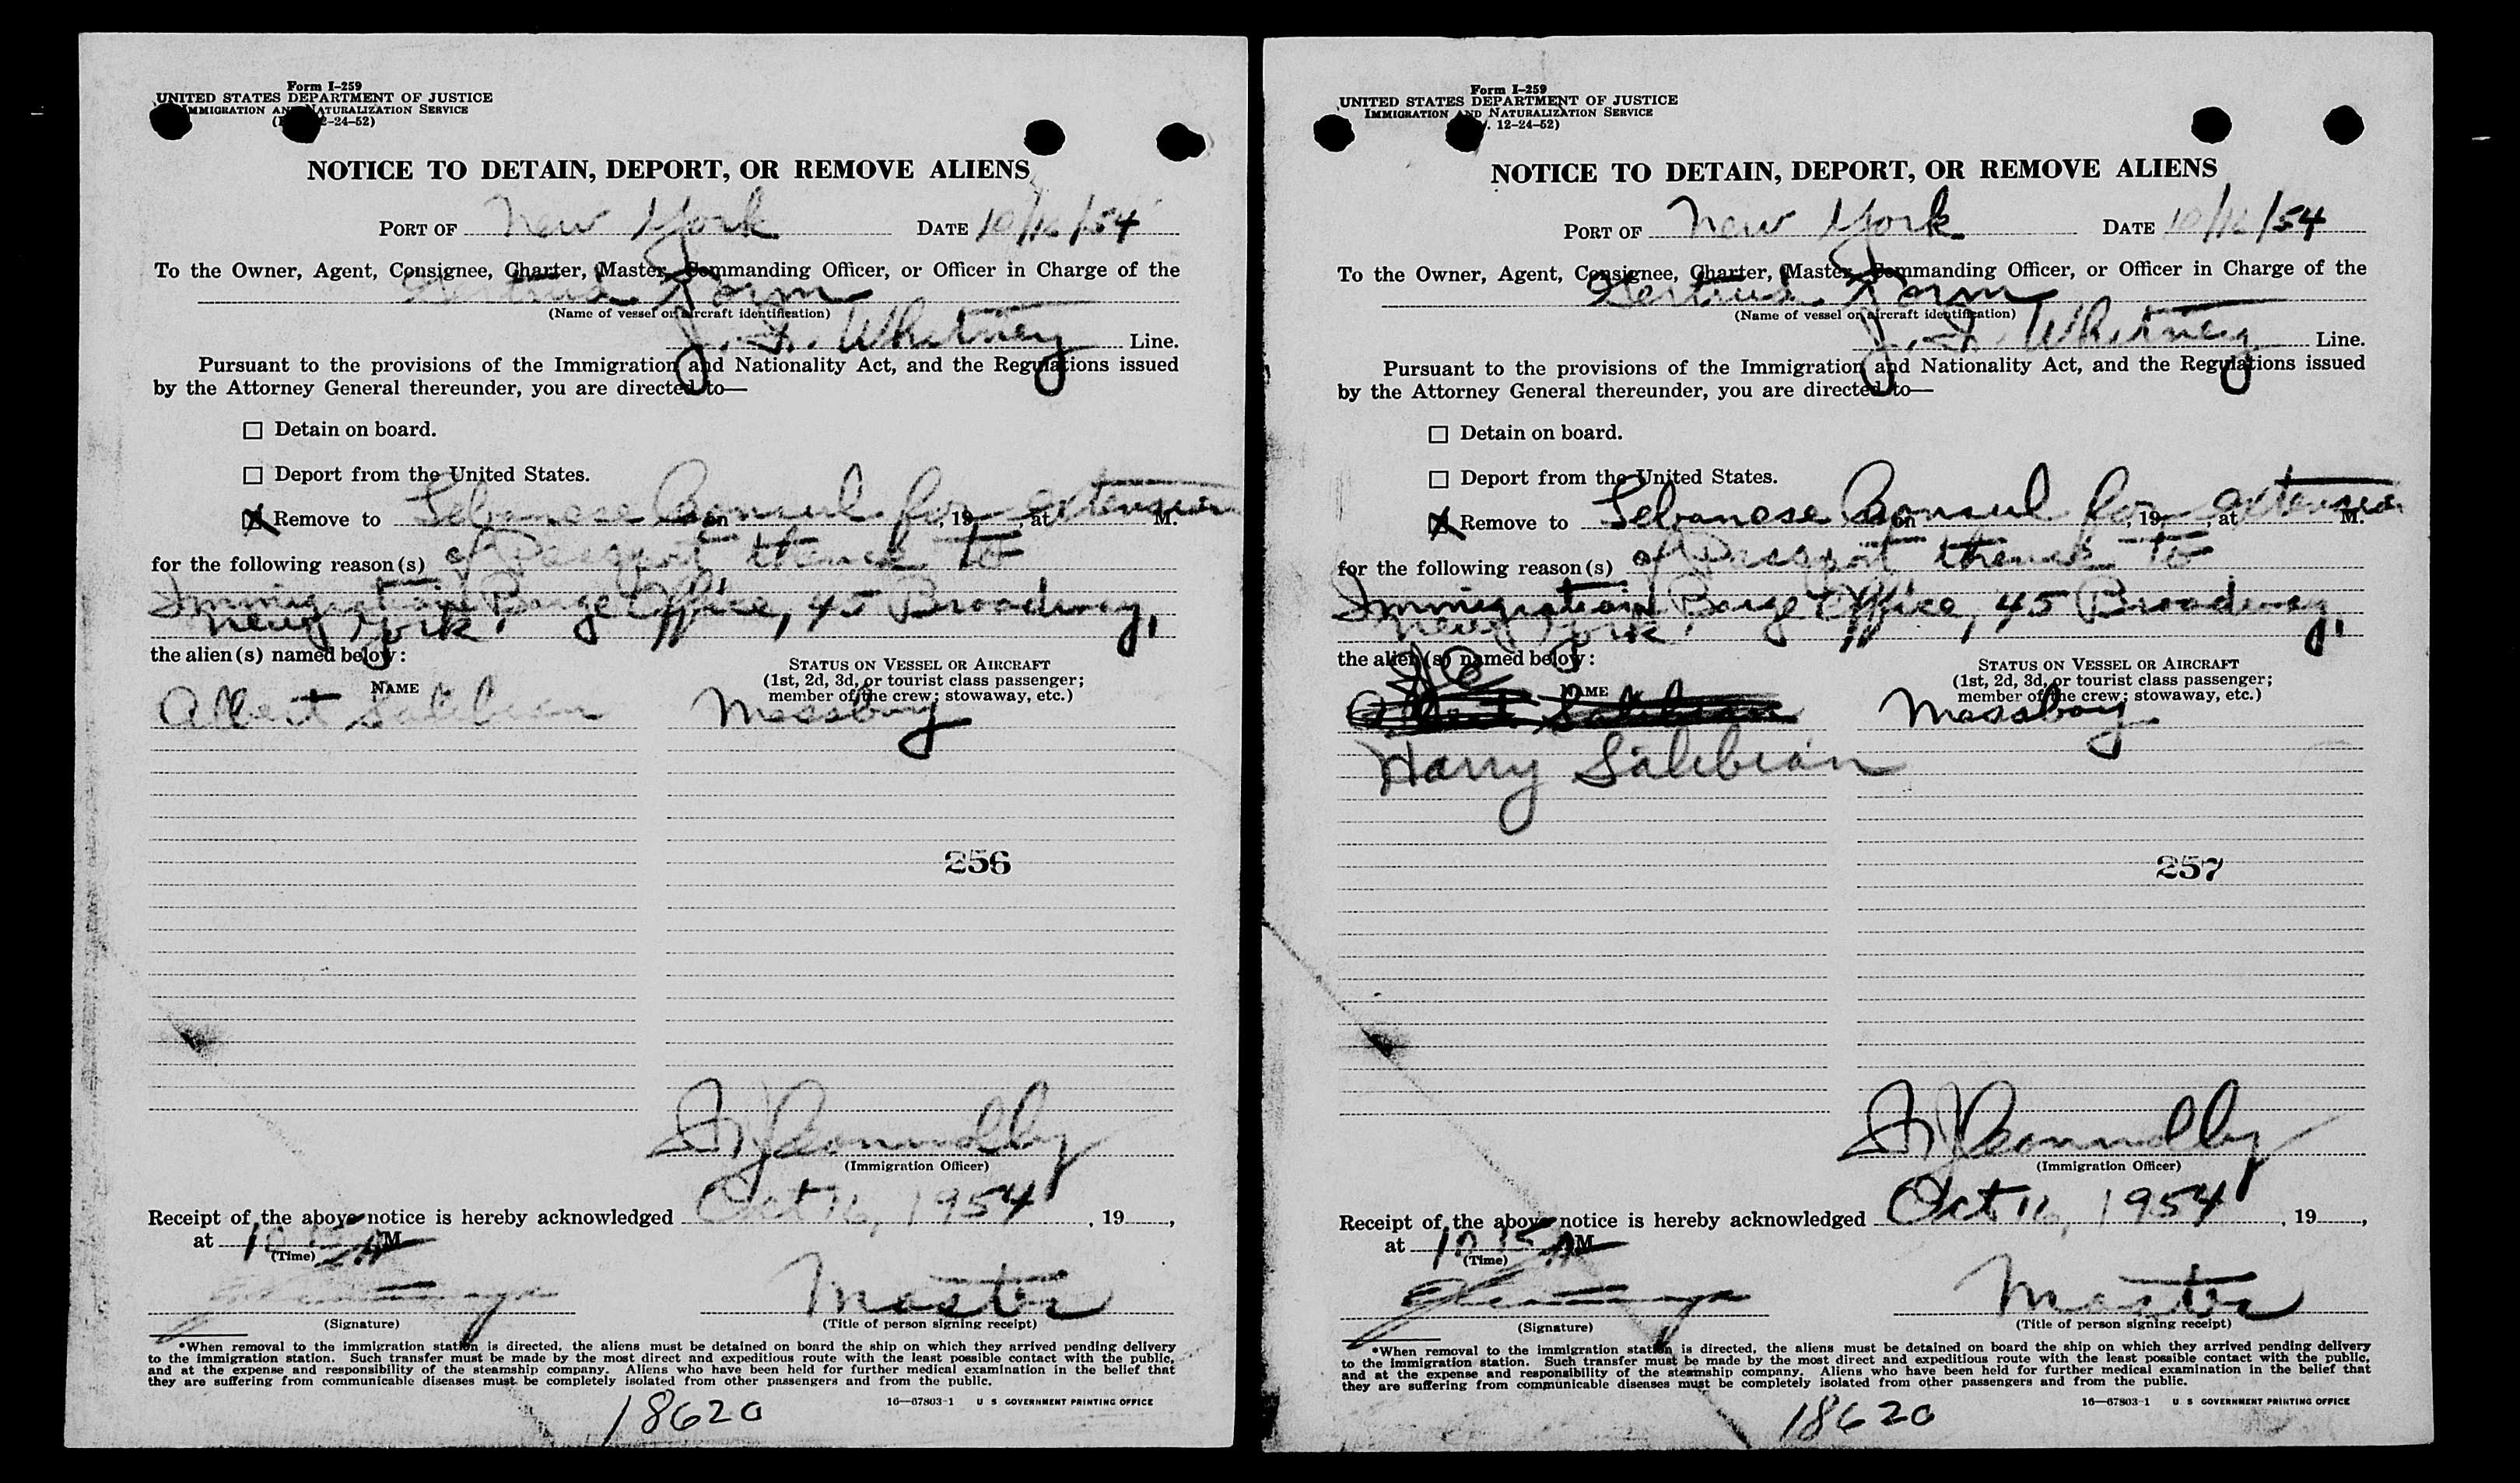 Form I-259
UNITED STATES DEPARTMENT OF JUSTICE
IMMIGRATION AND NATURALIZATION SERVICE
2-24-52)
NOTICE TO DETAIN, DEPORT, OR REMOVE ALIENS
PORT OF New York DATE 10/16/54
To the Owner, Agent, Consignee, Charter, Master, Commanding Officer, or Officer in Charge of the
Gertrud Torm
(Name of vessel or aircraft identification)
J. F. Whitney Line.
Pursuant to the provisions of the Immigration and Nationality Act, and the Regulations issued
by the Attorney General thereunder, you are directed to—
☐ Detain on board.
☐ Deport from the United States.
☒ Remove to Lebanese Consul for extension on , 19 , at M.
for the following reason(s) of Passport thence to
Immigration Barge Office, 45 Broadway,
New York.
the alien(s) named below:
NAME
STATUS ON VESSEL OR AIRCRAFT
(1st, 2d, 3d, or tourist class passenger;
member of the crew; stowaway, etc.)
Albert Salibian Messboy
256
Connolly
(Immigration Officer)
Receipt of the above notice is hereby acknowledged Oct 16, 1954, 19 ,
at 10 AM
(Time)
Master
(Signature) (Title of person signing receipt)
*When removal to the immigration station is directed, the aliens must be detained on board the ship on which they arrived pending delivery
to the immigration station. Such transfer must be made by the most direct and expeditious route with the least possible contact with the public,
and at the expense and responsibility of the steamship company. Aliens who have been held for further medical examination in the belief that
they are suffering from communicable diseases must be completely isolated from other passengers and from the public.
16—67803-1 U S GOVERNMENT PRINTING OFFICE
18620
Form I-259
UNITED STATES DEPARTMENT OF JUSTICE
IMMIGRATION AND NATURALIZATION SERVICE
. 12-24-52)
NOTICE TO DETAIN, DEPORT, OR REMOVE ALIENS
PORT OF New York DATE 10/16/54
To the Owner, Agent, Consignee, Charter, Master, Commanding Officer, or Officer in Charge of the
Gertrud Torm
(Name of vessel or aircraft identification)
J. F. Whitney Line.
Pursuant to the provisions of the Immigration and Nationality Act, and the Regulations issued
by the Attorney General thereunder, you are directed to—
☐ Detain on board.
☐ Deport from the United States.
☒ Remove to Lebanese Consul for extension on , 19 , at M.
for the following reason(s) of Passport thence to
Immigration Barge Office, 45 Broadway,
New York.
the alien(s) named below:
NAME
STATUS ON VESSEL OR AIRCRAFT
(1st, 2d, 3d, or tourist class passenger;
member of the crew; stowaway, etc.)
Albert Salibian Messboy
Harry Salibian
257
Connolly
(Immigration Officer)
Receipt of the above notice is hereby acknowledged Oct 16, 1954, 19 ,
at 10 15 AM
(Time)
Master
(Signature) (Title of person signing receipt)
*When removal to the immigration station is directed, the aliens must be detained on board the ship on which they arrived pending delivery
to the immigration station. Such transfer must be made by the most direct and expeditious route with the least possible contact with the public,
and at the expense and responsibility of the steamship company. Aliens who have been held for further medical examination in the belief that
they are suffering from communicable diseases must be completely isolated from other passengers and from the public.
16—67803-1 U S GOVERNMENT PRINTING OFFICE
18620